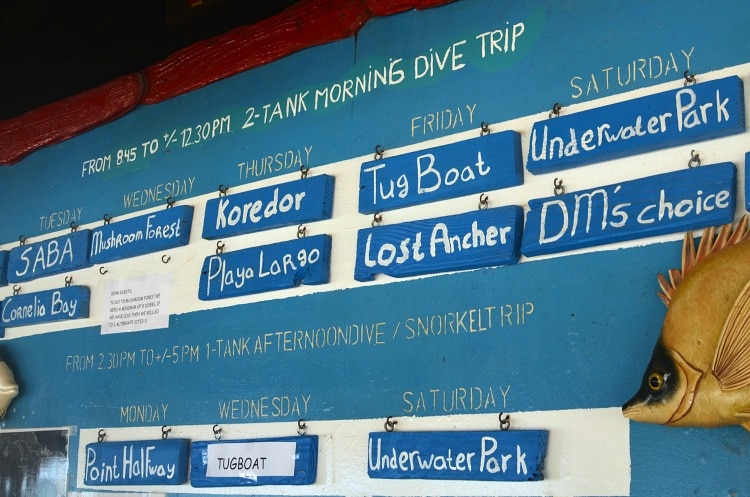 FROM 8.45 TO +/- 12.30PM 2-TANK MORNING DIVE TRIP
TUESDAY WEDNESDAY THURSDAY FRIDAY SATURDAY
SABA Mushroom Forest Koredor Tug Boat Underwater Park
Cornelia Bay Playa Largo Lost Ancher DM's choice
DEAR GUESTS,
TO GO TO MUSHROOM FOREST WE
NEED A MINIMUM OF 5 DIVERS. IF
WE HAVE LESS THEN WE WILL GO
TO
FROM 2.30PM TO +/- 5PM 1-TANK AFTERNOONDIVE / SNORKELTRIP
MONDAY WEDNESDAY SATURDAY
Point Halfway TUGBOAT Underwater Park